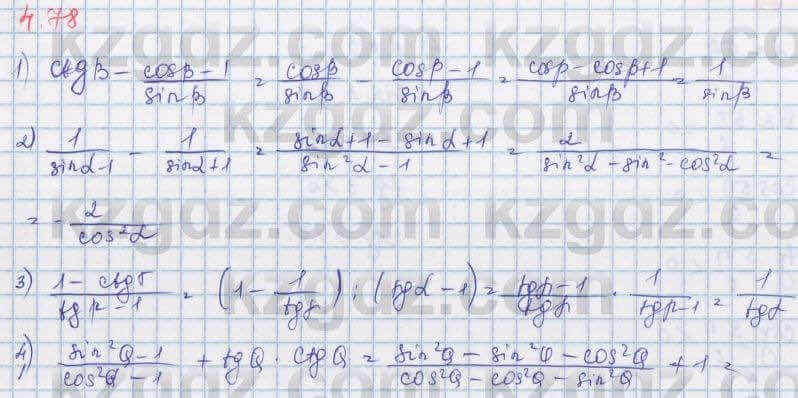 4.78
1) ctgβ - (cosβ - 1)/sinβ = cosβ/sinβ - (cosβ - 1)/sinβ = (cosβ - cosβ + 1)/sinβ = 1/sinβ
2) 1/(sinα-1) - 1/(sinα+1) = (sinα+1 - sinα+1)/(sin²α - 1) = 2/(sin²α - sin² - cos²α) =
= - 2/cos²α
3) (1 - ctgγ)/(tgγ - 1) = (1 - 1/tgγ) : (tgα - 1) = (tgγ - 1)/tgγ · 1/(tgγ-1) = 1/tgγ
4) (sin²Q - 1)/(cos²Q - 1) + tgQ · ctgQ = (sin²Q - sin²Q - cos²Q)/(cos²Q - cos²Q - sin²Q) + 1 =
kzgdz.com kzgdz.com
kzgdz.com
kzgdz.com kzgdz.com
kzgdz.com
kzgdz.com kzgdz.com